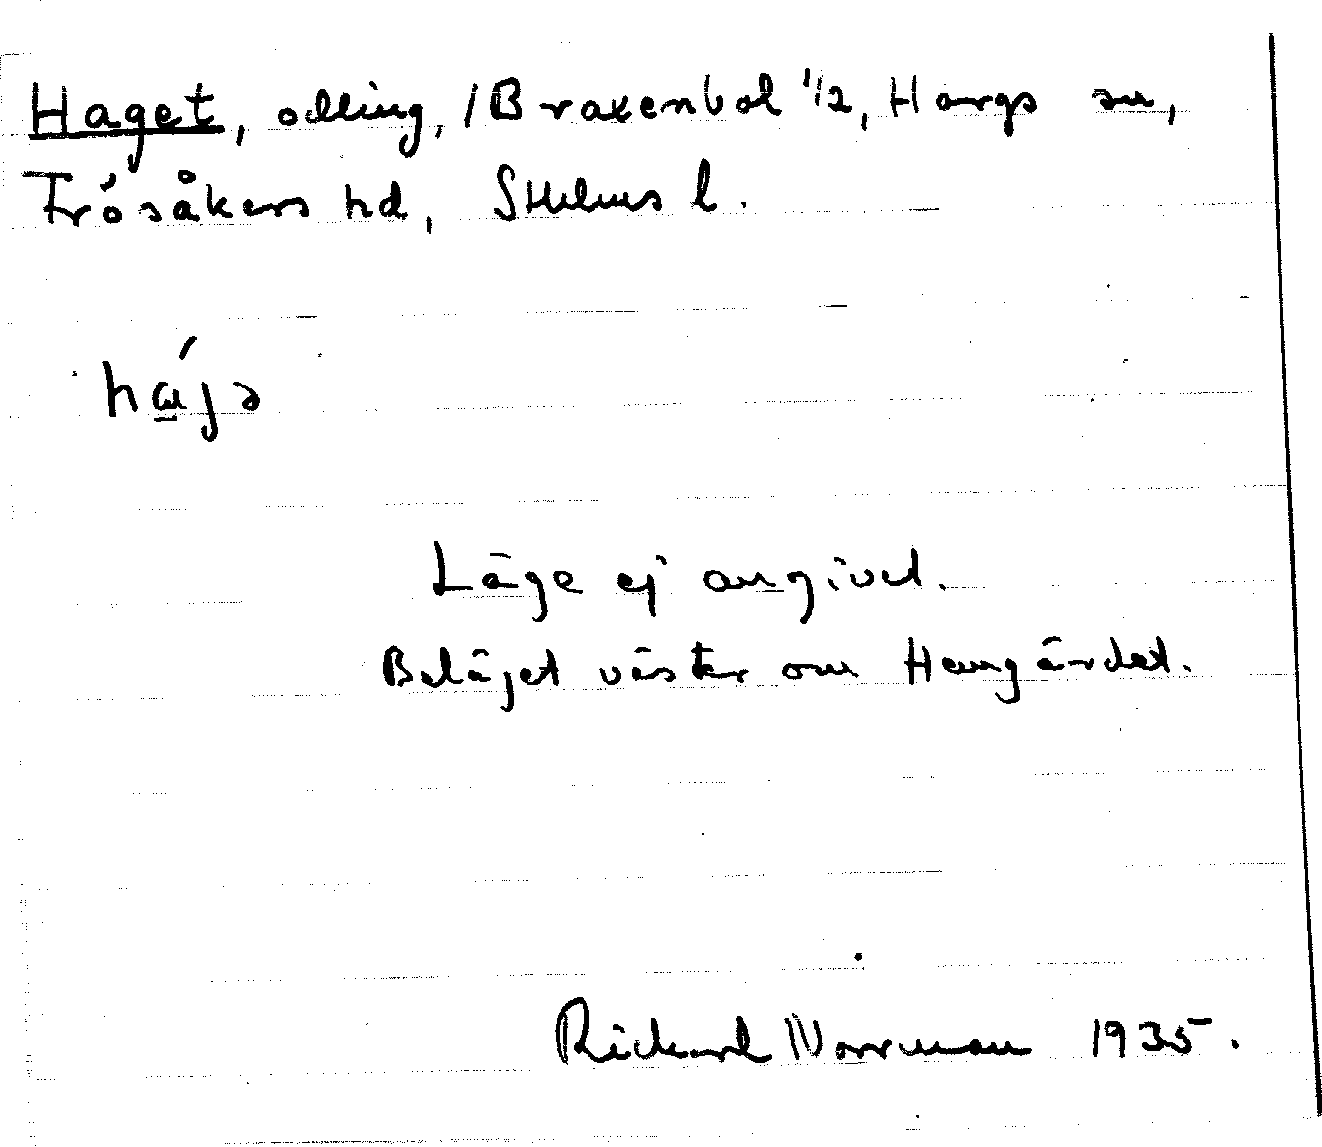 Haget, odling, / Braxenbol 1/2, Hargs sn,
Frösåkers hd, Sthlms l.
hájə
Läge ej angivet.
Beläget väster om Hemgärdet.
Rickard Norrman 1935.